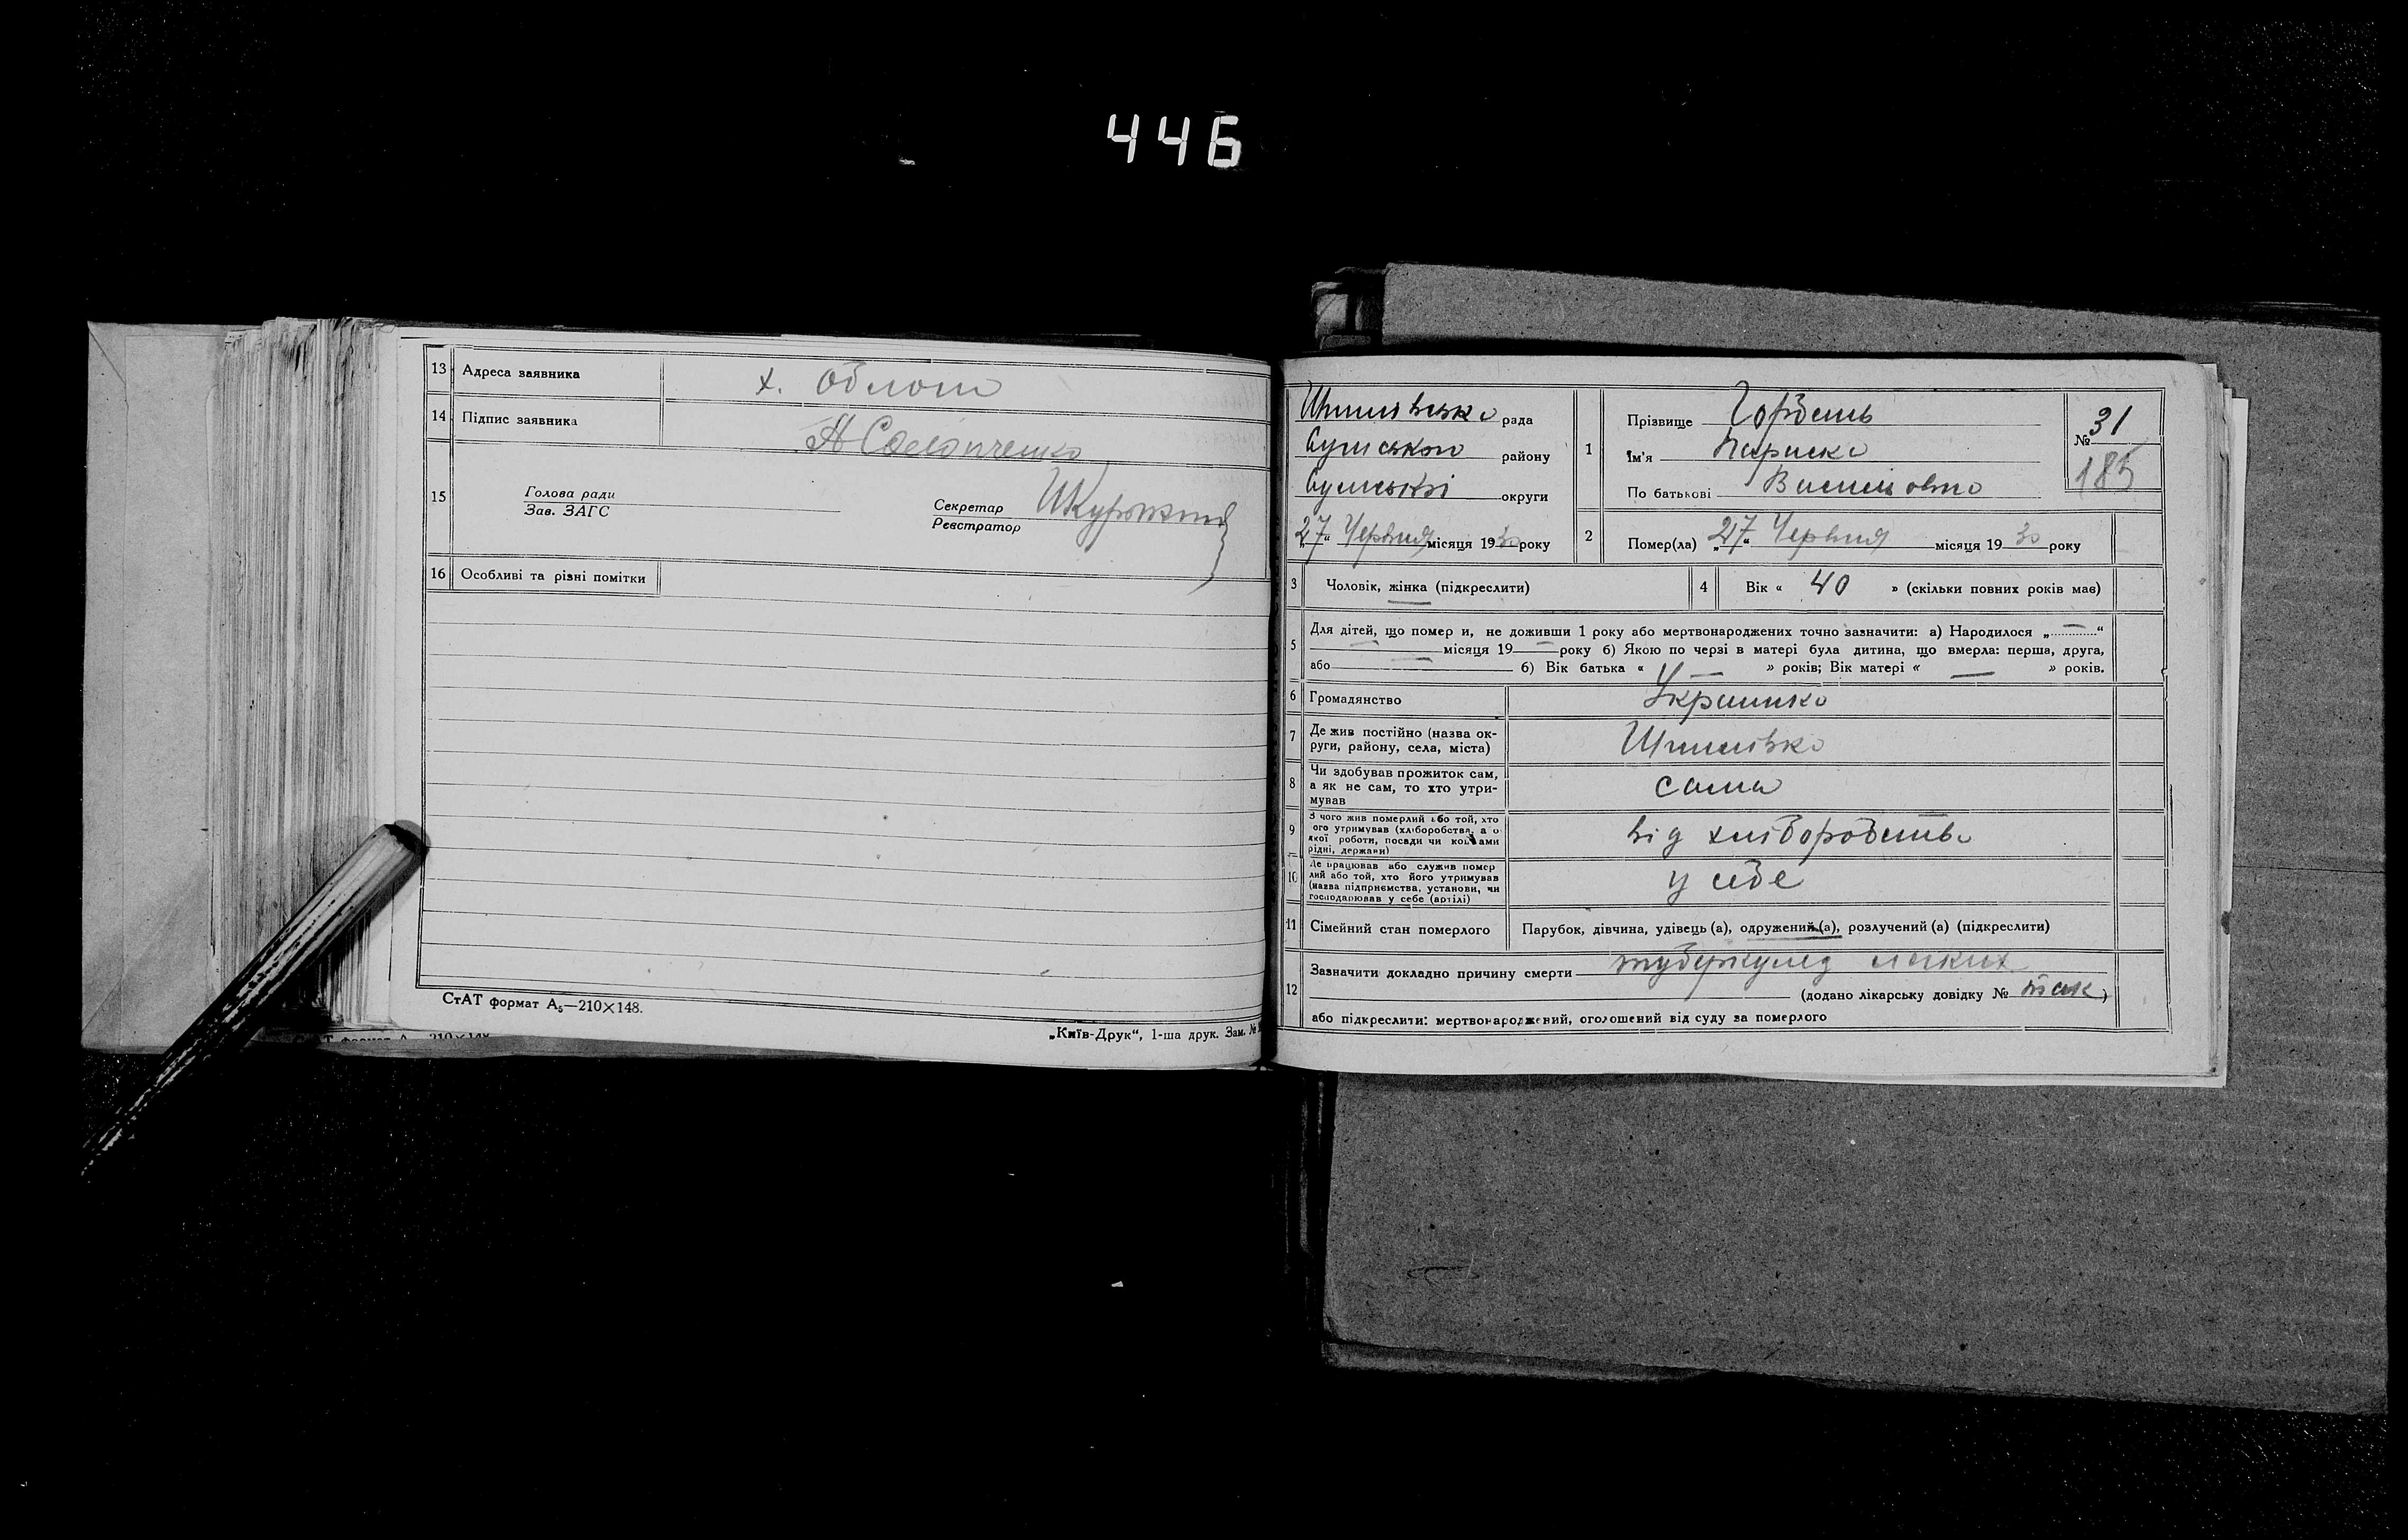 446
13 Адреса заявника х. Облоги
14 Підпис заявника
15 Голова ради
Зав. ЗАГС
Секретар
Реєстратор
16 Особливі та різні помітки
СтАТ формат А₅—210×148.
„Київ-Друк“, 1-ша друк. Зам. №
рада
Сумського району
Сумської округи
„27“ Червня місяця 1930 року
1 Прізвище
Ім'я Параска
По батькові
№ 31
185
2 Помер(ла) „27“ Червня місяця 1930 року
3 Чоловік, жінка (підкреслити)
4 Вік « 40 » (скільки повних років має)
5 Для дітей, що помер и, не доживши 1 року або мертвонароджених точно зазначити: а) Народилося „—“
— місяця 19 — року б) Якою по черзі в матері була дитина, що вмерла: перша, друга,
або — б) Вік батька « — » років; Вік матері « — » років.
6 Громадянство Українка
7 Де жив постійно (назва ок-
руги, району, села, міста)
8 Чи здобував прожиток сам,
а як не сам, то хто утри-
мував
сама
9 З чого жив померлий або той, хто
ого утримував (хліборобства, а о
якої роботи, посади чи коштами
рідні, держави)
від хліборобства
10 Де працював або служив помер
лий або той, хто його утримував
(назва підприємства, установи, чи
господарював у себе (артілі)
у себе
11 Сімейний стан померлого Парубок, дівчина, удівець (а), одружений (а), розлучений (а) (підкреслити)
12 Зазначити докладно причину смерти туберкульоз легких
(додано лікарську довідку № так)
або підкреслити: мертвонароджений, оголошений від суду за померлого